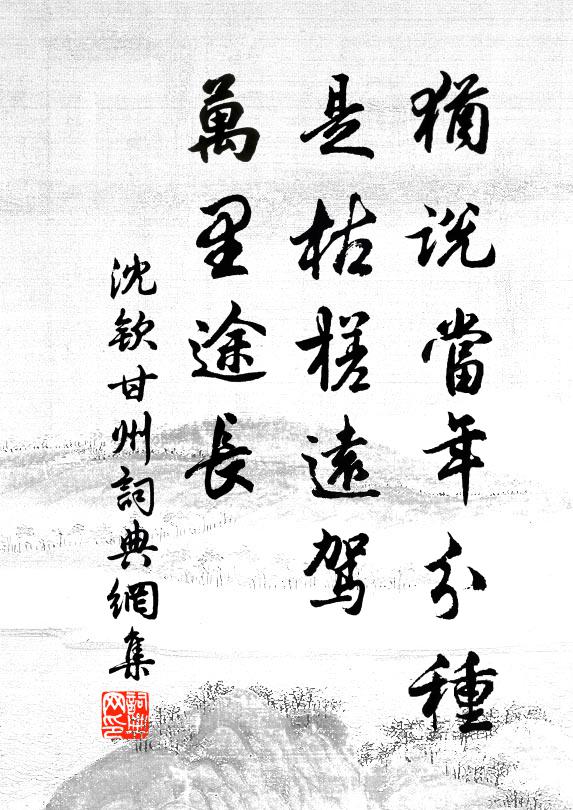 猶說當年分種
是枯槎遠駕
萬里途長
沈欽甘州詞典網集